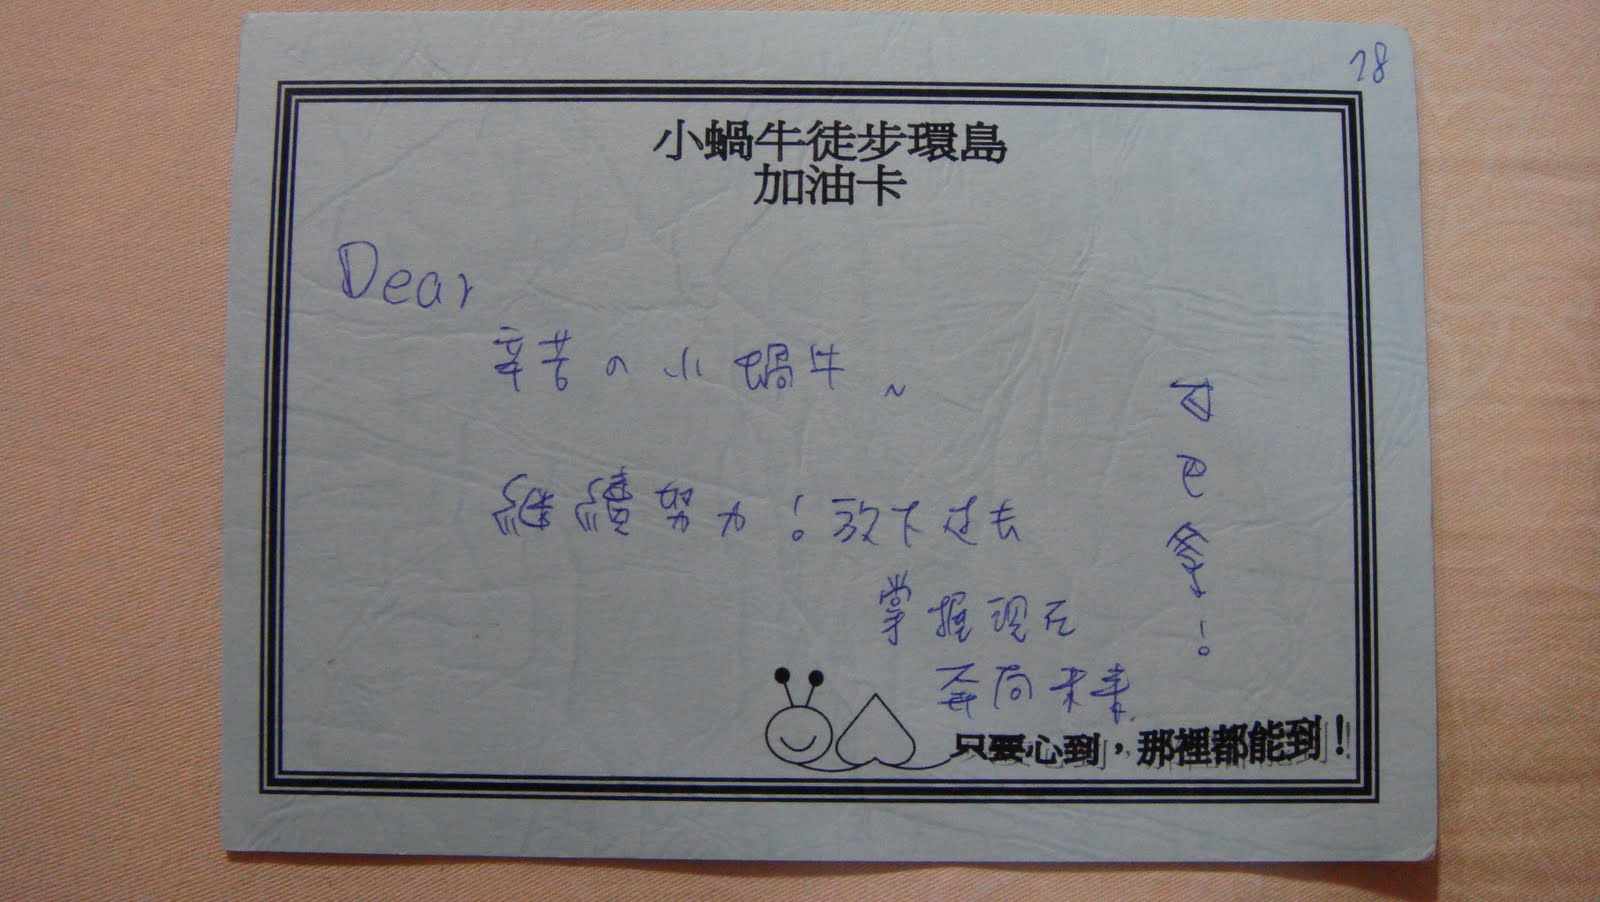 28
小蝸牛徒步環島
加油卡
Dear
辛苦の小蝸牛~
繼續努力！放下过去
掌握現在
奔向未來
只要心到，那裡都能到！